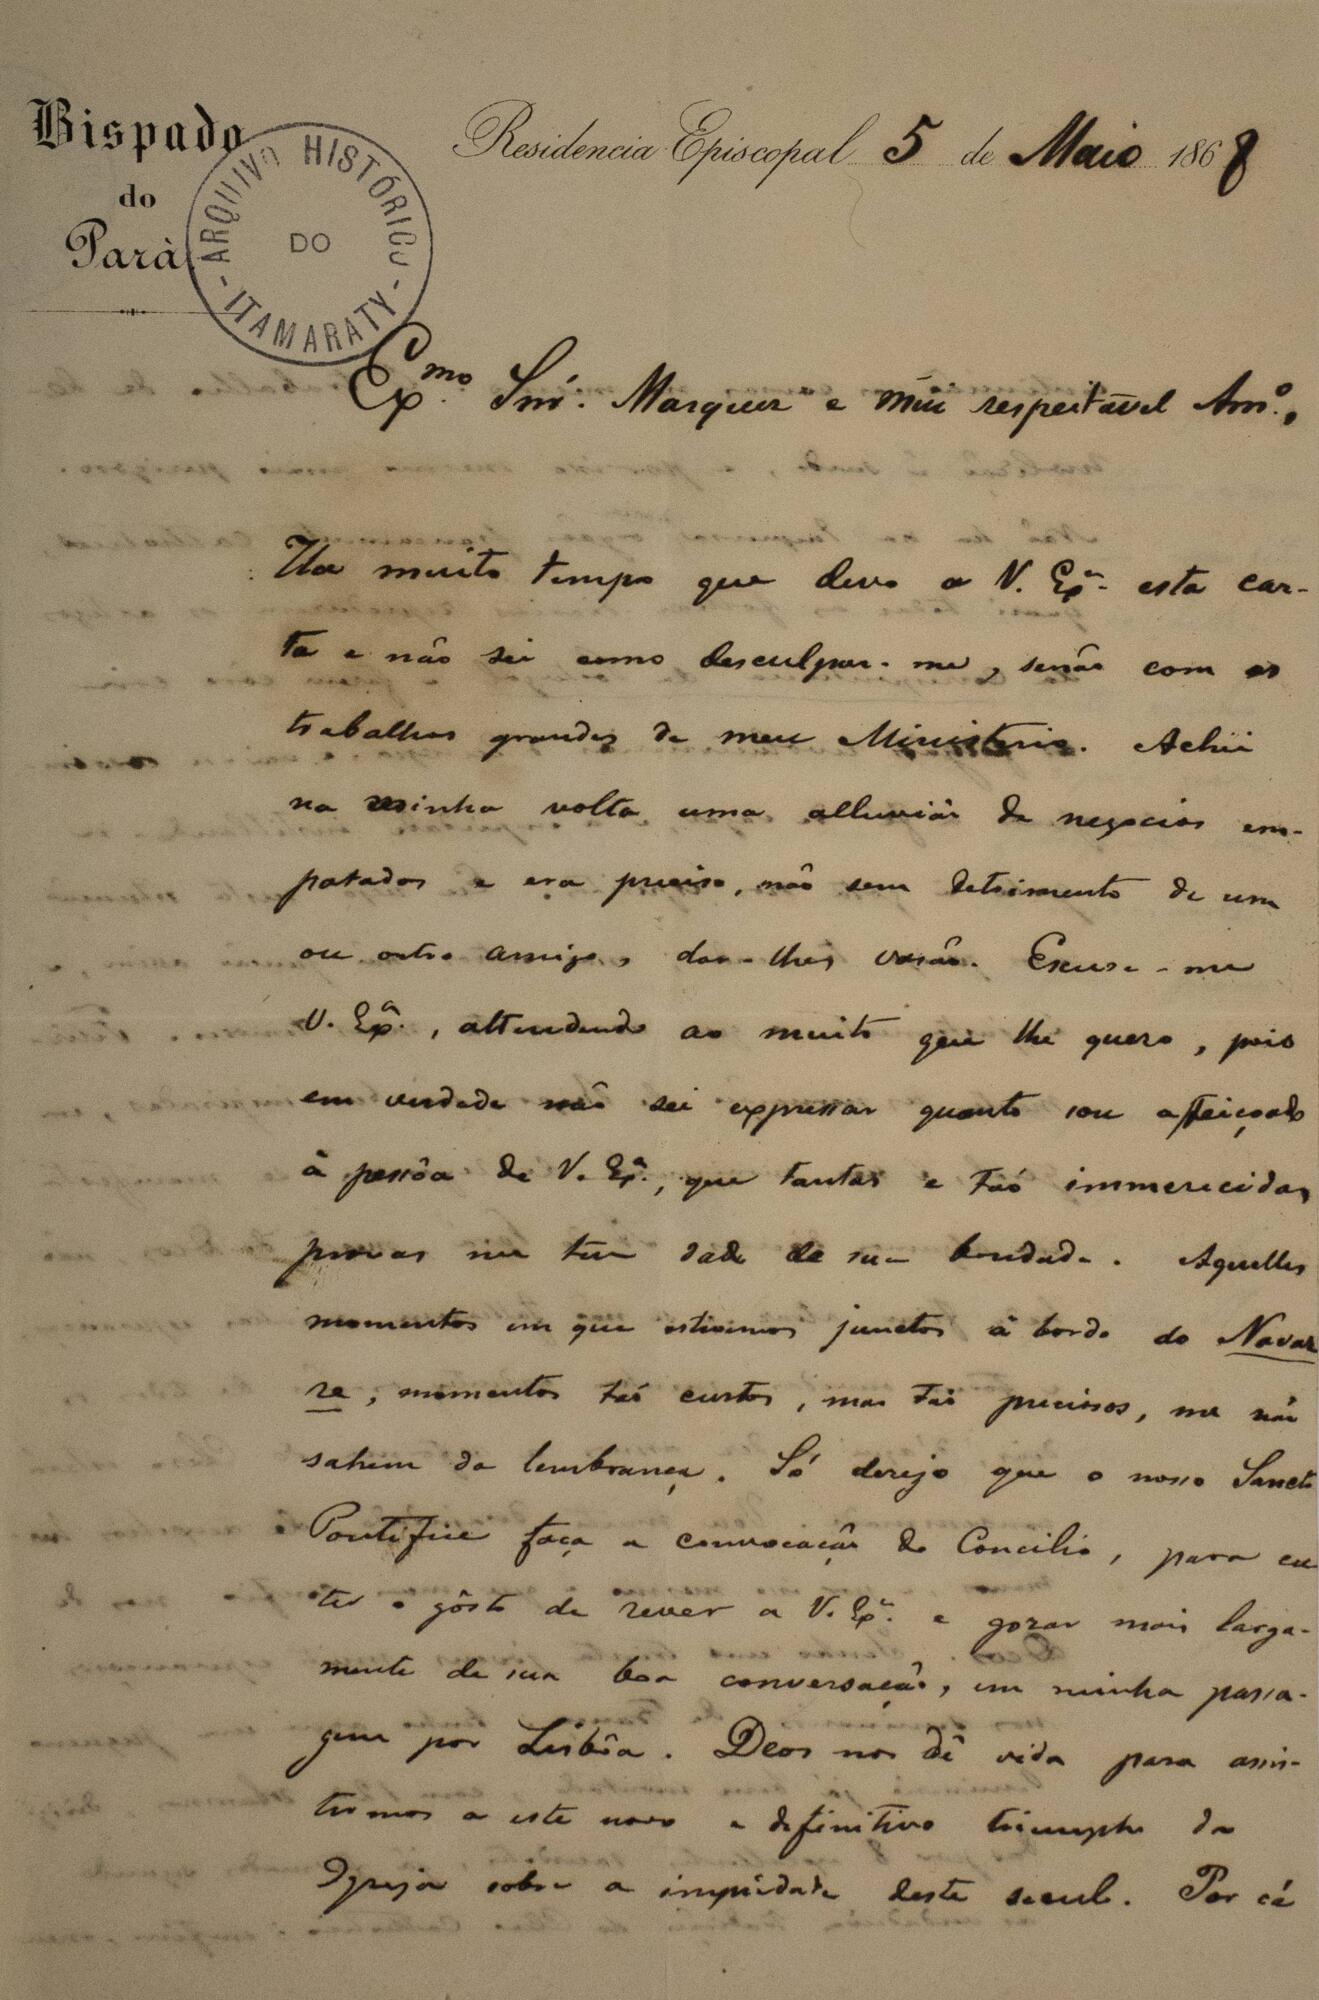 Bispado
do
Pará
ARQUIVO HISTÓRICO
DO
- ITAMARATY -
Residencia Episcopal 5 de Maio 1868
Exmo. Snr. Marquez e mui respeitavel Amo.,
Ha muito tempo que devo a V. Exa. esta car-
ta e não sei como desculpar-me, senão com os
trabalhos grandes de meu Ministerio. Achei
na minha volta uma alluvião de negocios em-
patados e era preciso, não sem detrimento de um
ou outro amigo, dar-lhes vasão. Excuse-me
V. Exa., attendendo ao muito que lhe quero, pois
em verdade não sei expressar quanto sou affeiçoado
á pessôa de V. Exa., que tantas e tão immerecidas
provas me tem dado de sua bondade. Aquelles
momentos em que estivemos junctos á bordo do Navar
re, momentos tão curtos, mas tão preciosos, me não
sahem da lembrança. Só desejo que o nosso Sancto
Pontifice faça a convocação do Concilio, para eu
ter o gôsto de rever a V. Exa. e gozar mais larga-
mente de sua boa conversação, em minha passa-
gem por Lisbôa. Deos nos dê vida para assis-
tirmos a este novo e definitivo triumpho da
Igreja sobre a impiedade deste seculo. Por cá